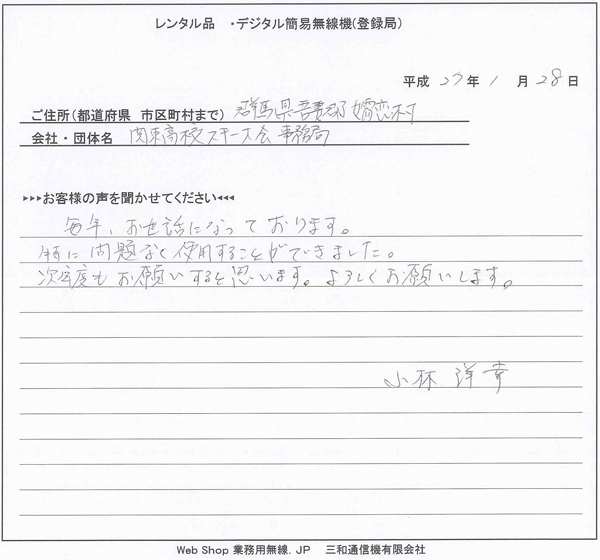 レンタル品 ・デジタル簡易無線機(登録局)
平成 27年 1 月 28日
ご住所(都道府県 市区町村まで) 群馬県吾妻郡嬬恋村
会社・団体名 関東高校スキー大会事務局
▸▸▸お客様の声を聞かせてください◂◂◂
毎年、お世話になっております。
特に問題なく使用することができました。
次年度もお願いすると思います。よろしくお願いします。
小林 洋幸
Web Shop 業務用無線.JP 三和通信機有限会社